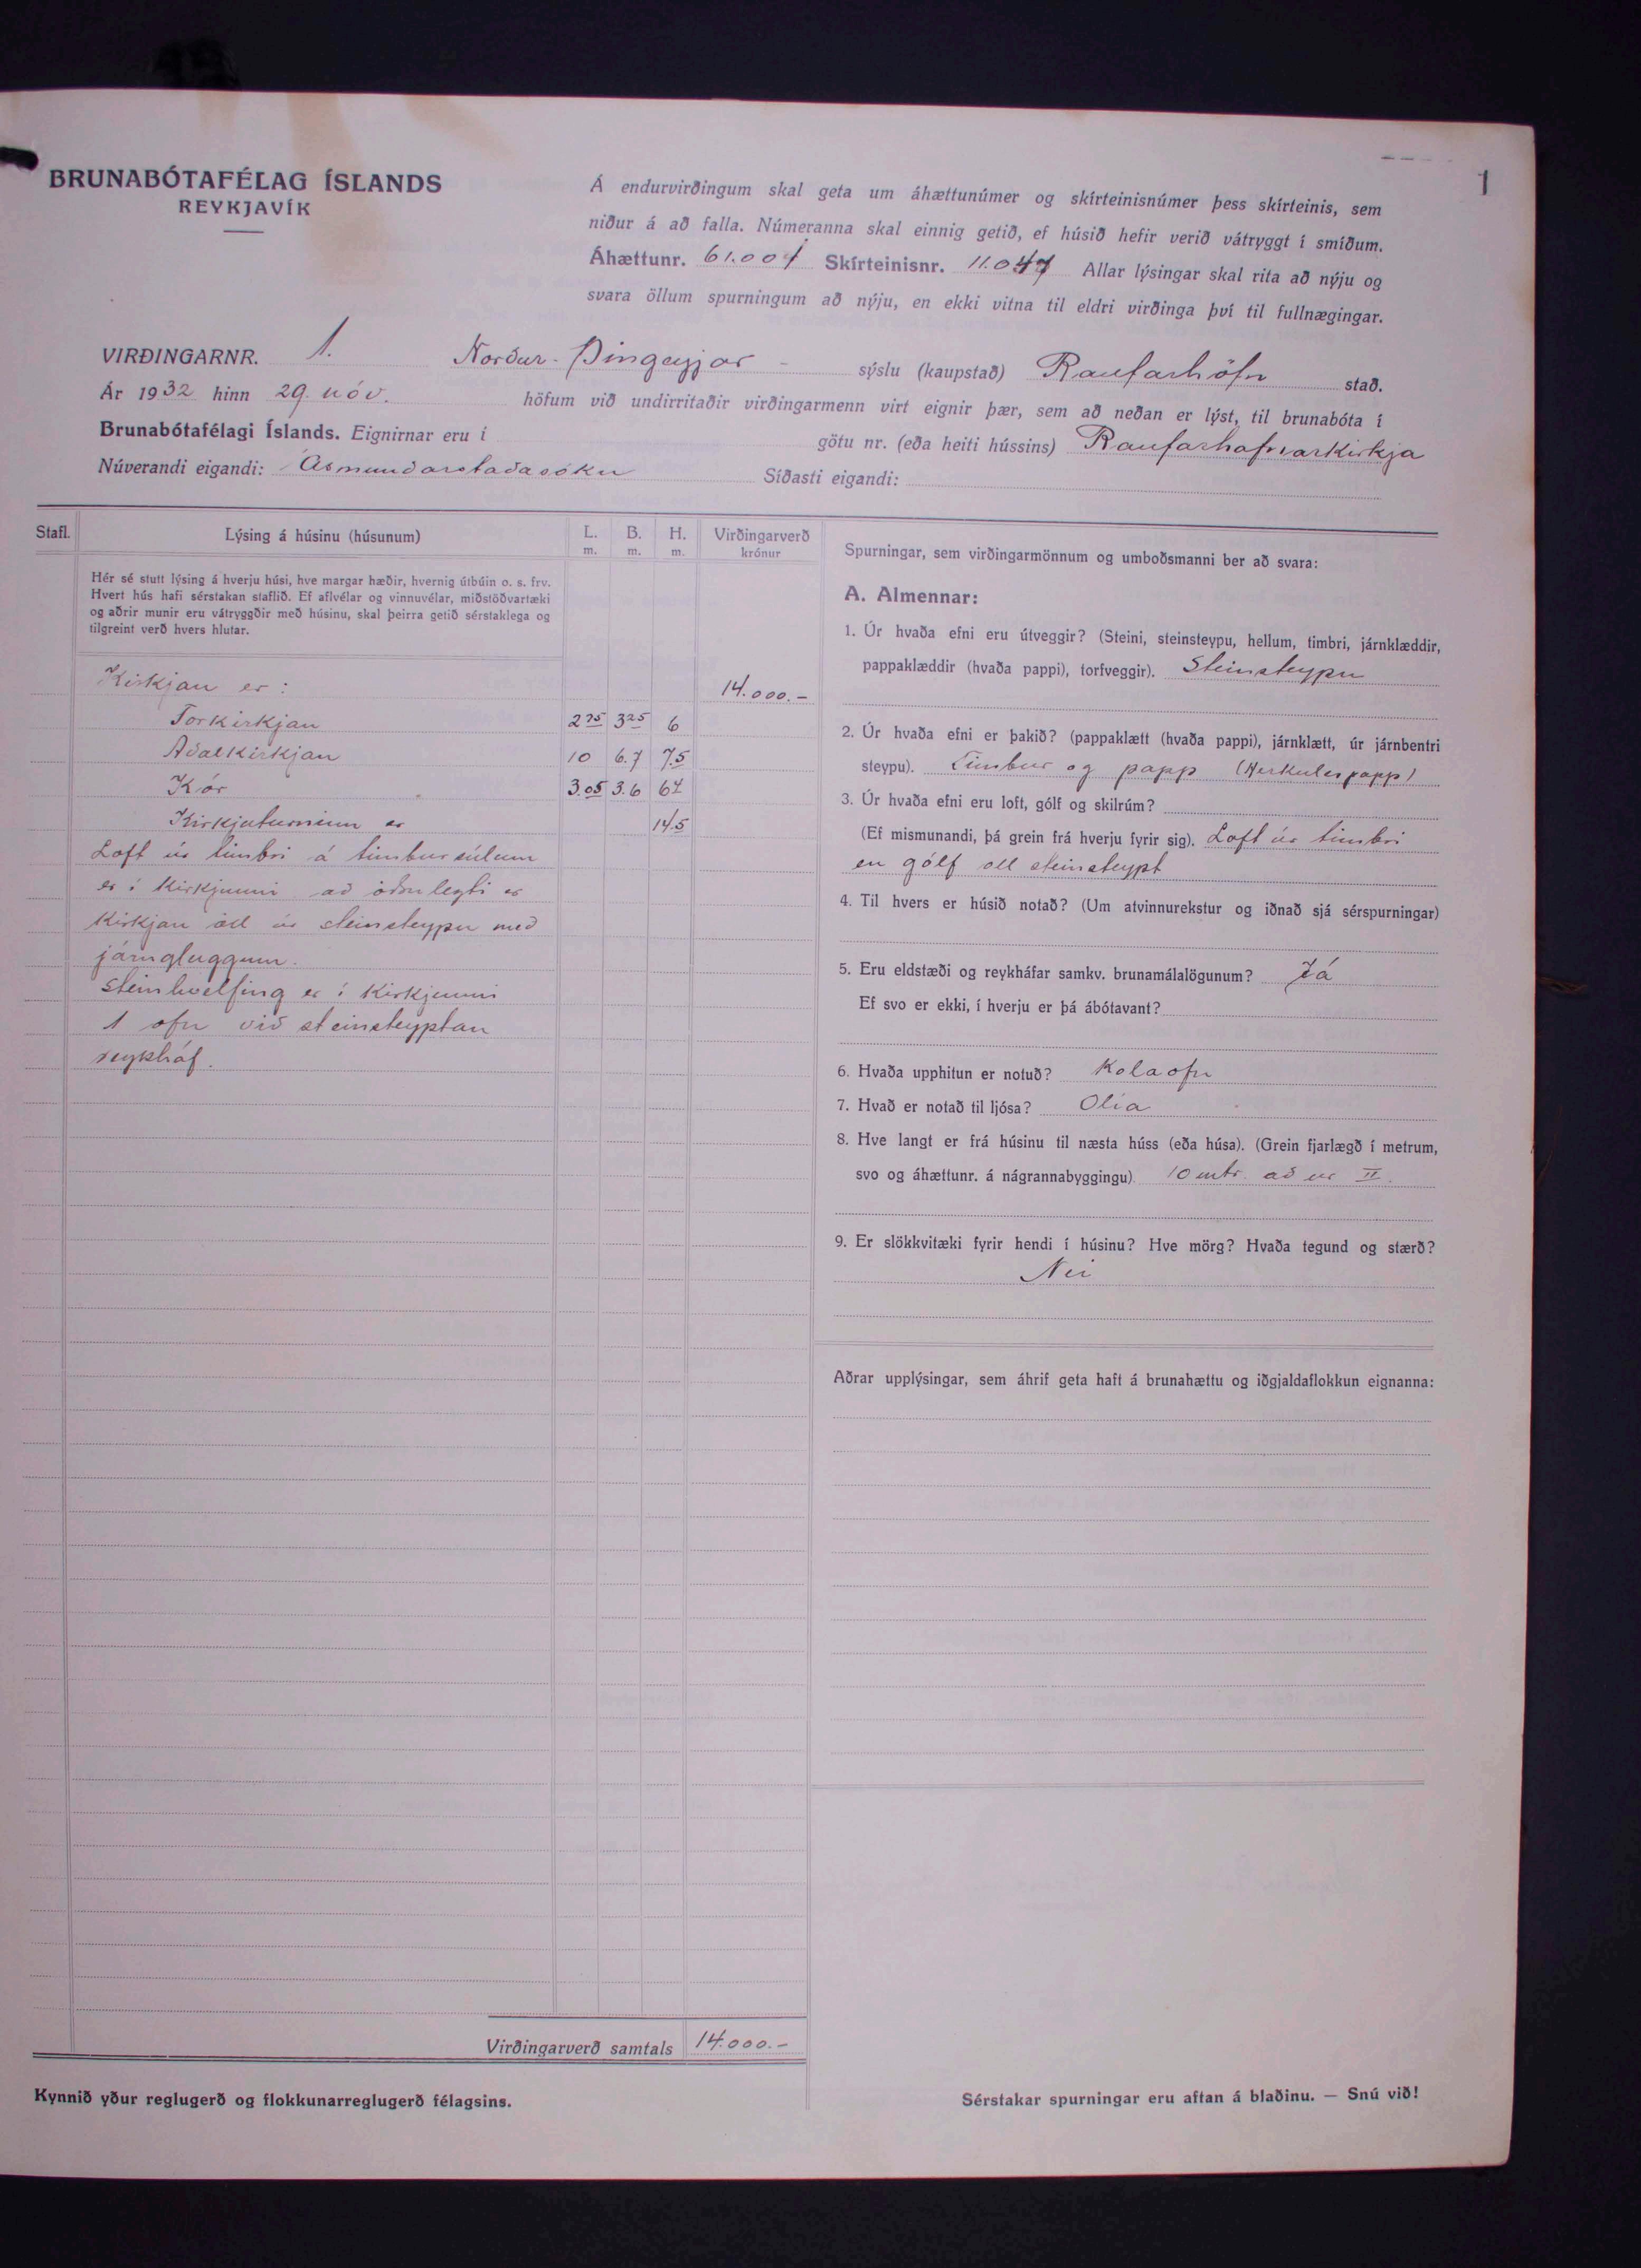 1
BRUNABÓTAFÉLAG ÍSLANDS
REYKJAVÍK
Á endurvirðingum skal geta um áhættunúmer og skírteinisnúmer þess skírteinis, sem
niður á að falla. Númeranna skal einnig getið, ef húsið hefir verið vátryggt í smíðum.
Áhættunr. 61.001 Skírteinisnr. 11.047 Allar lýsingar skal rita að nýju og
svara öllum spurningum að nýju, en ekki vitna til eldri virðinga því til fullnægingar.
VIRÐINGARNR. 1. Norður-Þingeyjar - sýslu (kaupstað) Raufarhöfn stað.
Ár 1932 hinn 29. nóv. höfum við undirritaðir virðingarmenn virt eignir þær, sem að neðan er lýst, til brunabóta í
Brunabótafélagi Íslands. Eignirnar eru í götu nr. (eða heiti hússins) Raufarhafnarkirkja
Núverandi eigandi: Ásmundarstaðasókn Síðasti eigandi:
Stafl. Lýsing á húsinu (húsunum) L. m. B. m. H. m. Virðingarverð krónur
Hér sé stutt lýsing á hverju húsi, hve margar hæðir, hvernig útbúin o. s. frv.
Hvert hús hafi sérstakan staflið. Ef aflvélar og vinnuvélar, miðstöðvartæki
og aðrir munir eru vátryggðir með húsinu, skal þeirra getið sérstaklega og
tilgreint verð hvers hlutar.
Kirkjan er: 14.000.-
Forkirkjan 2 75 3 25 6
Aðalkirkjan 10 6.7 7.5
Kór 3.05 3.6 6
Kirkjuturninn er 14.5
Loft úr timbri á timbursúlum
er í kirkjunni að öðru leyti er
kirkjan öll úr steinsteypu með
járngluggum.
Steinhvelfing er í kirkjunni
1 ofn við steinsteyptan
reykháf.
Virðingarverð samtals 14.000.-
Kynnið yður reglugerð og flokkunarreglugerð félagsins.
Spurningar, sem virðingarmönnum og umboðsmanni ber að svara:
A. Almennar:
1. Úr hvaða efni eru útveggir? (Steini, steinsteypu, hellum, timbri, járnklæddir,
pappaklæddir (hvaða pappi), torfveggir). Steinsteypu
2. Úr hvaða efni er þakið? (pappaklætt (hvaða pappi), járnklætt, úr járnbentri
steypu). Timbur og papp (Herkulespapp)
3. Úr hvaða efni eru loft, gólf og skilrúm?
(Ef mismunandi, þá grein frá hverju fyrir sig). Loft úr timbri
en gólf öll steinsteypt
4. Til hvers er húsið notað? (Um atvinnurekstur og iðnað sjá sérspurningar)
5. Eru eldstæði og reykháfar samkv. brunamálalögunum? Já
Ef svo er ekki, í hverju er þá ábótavant?
6. Hvaða upphitun er notuð? Kolaofn
7. Hvað er notað til ljósa? Olía
8. Hve langt er frá húsinu til næsta húss (eða húsa). (Grein fjarlægð í metrum,
svo og áhættunr. á nágrannabyggingu) 10 mtr. að nr II.
9. Er slökkvitæki fyrir hendi í húsinu? Hve mörg? Hvaða tegund og stærð?
Nei
Aðrar upplýsingar, sem áhrif geta haft á brunahættu og iðgjaldaflokkun eignanna:
Sérstakar spurningar eru aftan á blaðinu. — Snú við!